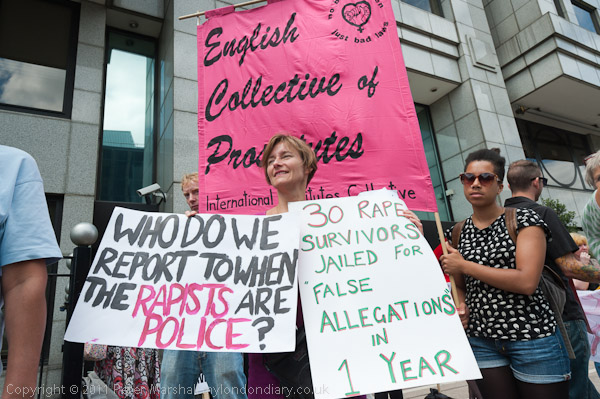 no b
just bad laws
English
Collective of
Prostitutes
International Prostitutes Collective
WHO DO WE
REPORT TO WHEN
THE RAPISTS ARE
POLICE?
30 RAPE
SURVIVORS
JAILED FOR
"FALSE
ALLEGATIONS"
IN
1 YEAR
Copyright © 2011 Peter Marshall mylondondiary.co.uk